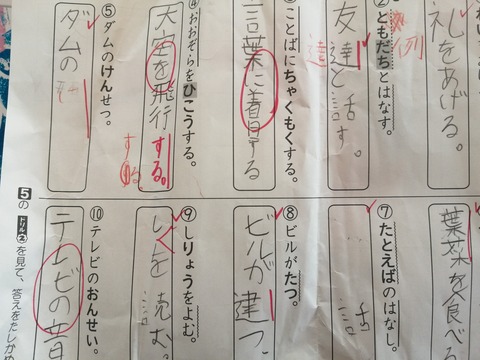 礼をあげる。
例
② ともだちとはなす。
友達と話す。
達
③ ことばにちゃくもくする。
言葉に着目する
④ おおぞらをひこうする。
大空を飛行する。
する
⑤ ダムのけんせつ。
ダムの
を食べる
⑦ たとえばのはなし。
話
⑧ ビルがたつ。
ビルが建つ。
⑨ しりょうをよむ。
を読む。
⑩ テレビのおんせい。
テレビの音
5の ドリル を見て、答えをたしかめ